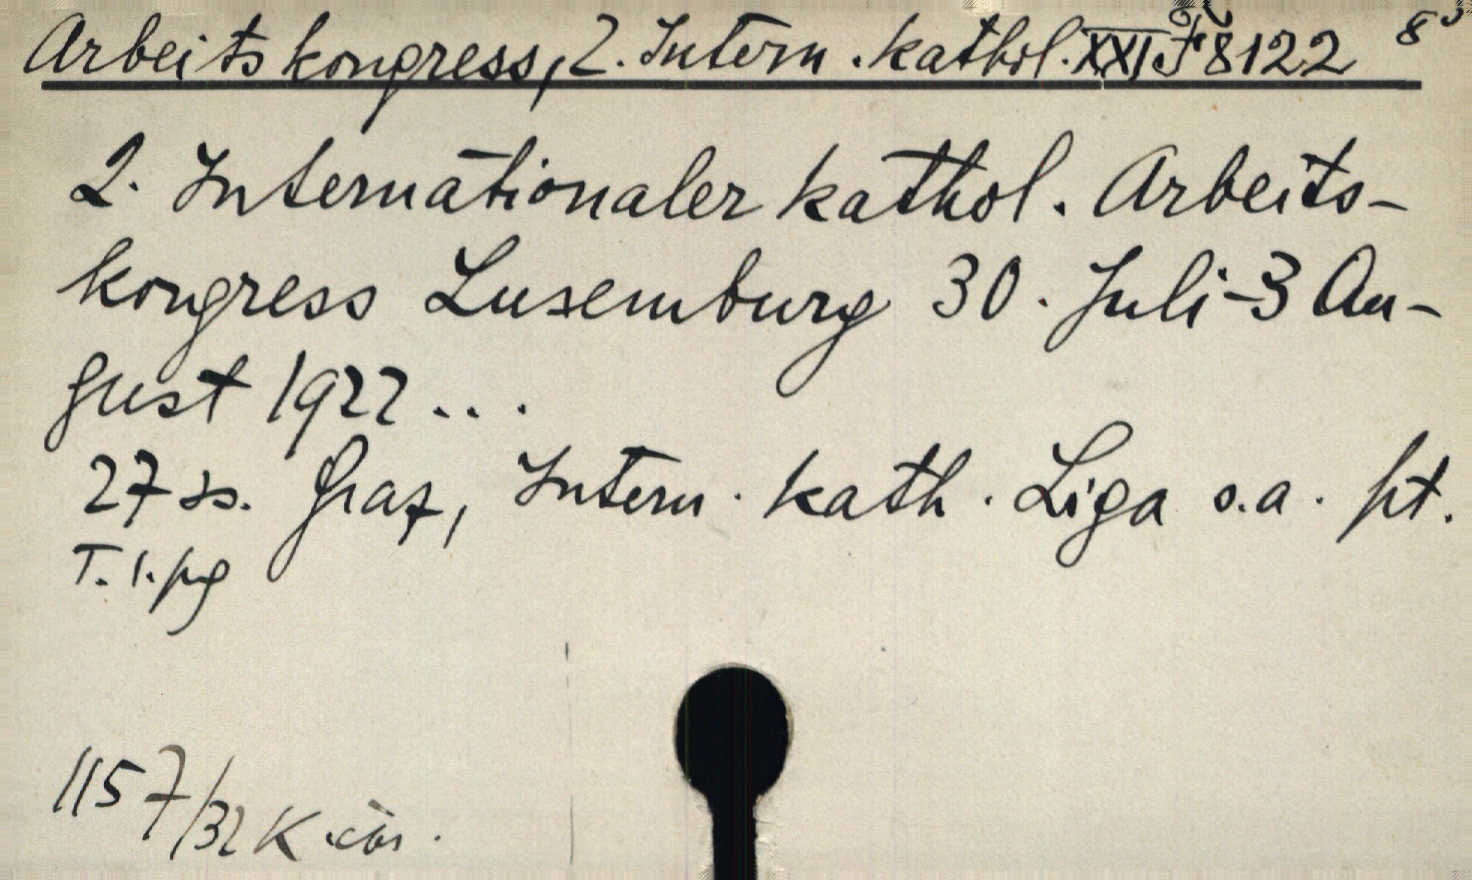 Arbeitskongress, 2. Intern. kathol. XXI F 8122 8°
2. Internationaler kathol. Arbeits-
kongress Luxemburg 30. Juli-3 Au-
gust 1922 ...
27 ss. Graz, Intern. kath. Liga s.a. pt.
T. 1. pg
1157/32 K